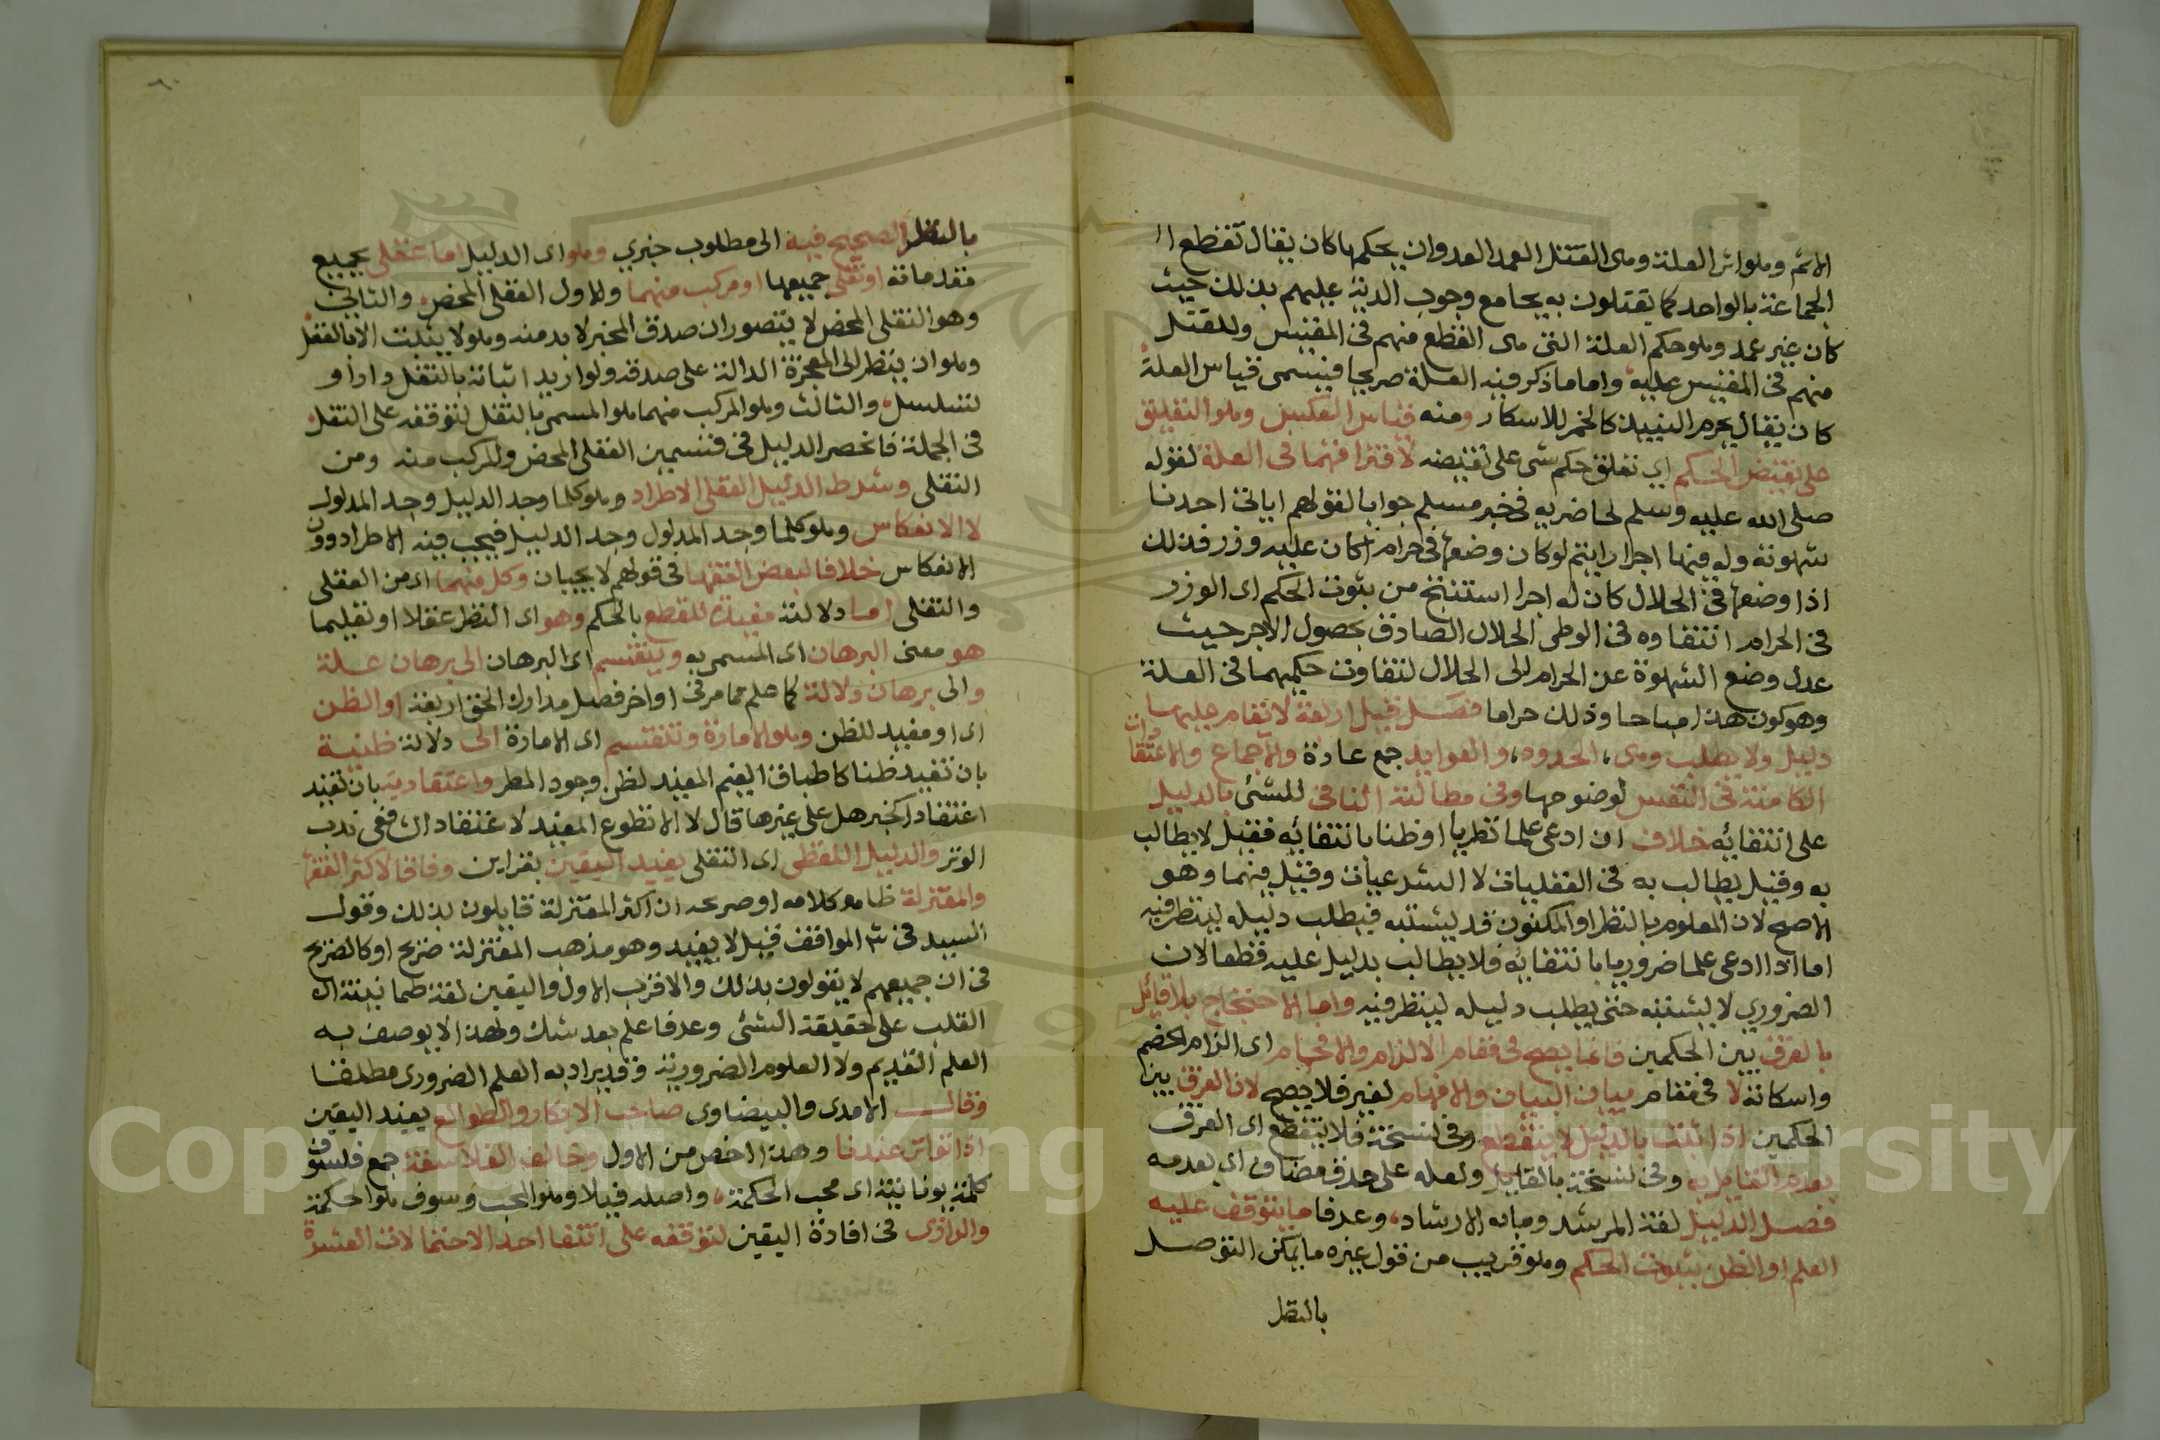 الاثم وهو اثر العلة وهى القتل العمد العدوان بحكمها كان يقال تقطع ا
الجماعة بالواحد كما يقتلون به بجامع وجوب الدية عليهم بذلك حيث
كان غير عمد وهو حكم العلة التى هى القطع منهم فى المقيس والقتل
منهم فى المقيس عليه واما ما ذكر فيه العلة صريحا فيسمى قياس العلة
كان يقال يحرم النبيذ كالخمر للاسكار ومنه قياس العكس وهو التعليق
على نقيض الحكم اى تعلق حكم شى على نقيضه لافتراقهما فى العلة لقوله
صلى الله عليه وسلم لحاضريه فى خبر مسلم جوابا لقولهم اياتى احدنا
شهوته وله فيها اجرا رايتم لو كان وضعها فى حرام اكان عليه وزر فذلك
اذا وضعها فى الحلال كان له اجرا استنتج من ثبوت الحكم اى الوزر
فى الحرام انتفاوه فى الوطى الحلال الصادق بحصول الاجر حيث
عدل وضع الشهوة عن الحرام الى الحلال لتفاوت حكيهما فى العلة
وهو كون هذا مباحا وذلك حراما فصل قيل اربعة لا تقام عليها
دليل ولا يطلب وهى الحدود والعوايد جمع عادة والاجماع والاعتقادات
الكامنة فى النفس لوضوحها وفى مطالبة النافى للشئ بالدليل
على انتفائه خلاف ان ادعى علما نظريا او ظنا بانتفائه فقيل لا يطالب
به وقيل يطالب به فى العقليات لا الشرعيات وقيل فيهما وهو
الاصح لان المعلوم بالنظر او المكنون قد يشتبه فيطلب دليله لينظر فيه
اما اذا ادعى علما ضروريا بانتفائه فلا يطالب بدليل عليه قطعا لان
الضرورى لا يشتبه حتى يطلب دليله لينظر فيه واما الاحتجاج بلا قائل
بالفرق بين الحكمين فانما يصح فى مقام الالزام والافحام اى الزام الخصم
واسكاته لا فى مقام بيان البيان والافهام لغير فلا يصح لان الفرق بين
الحكمين اذا ثبت بالدليل لا ينقطع وفى نسخة فلا ينقطع اى الفرق
بعدم القايل به وفى نسخة بالقايل ولعله على حذف مضاف اى بعدمه
فصل الدليل لغة المرشد وما به الارشاد وعرفا ما يتوقف عليه
العلم او الظن بثبوت الحكم وهو قريب من قول غيره ما يمكن التوصل
بالنظر
بالنظر الصحيح فيه الى مطلوب خبري وهو اى الدليل اما عقلى بجميع
مقدماته او نقلى جميعها او مركب منهما والاول العقلى المحض والثانى
وهو النقلى المحض لا يتصور ان صدق المخبر لا بد منه وهو لا يثبت الا بالعقل
وهو ان ينظر الى المعجزة الدالة على صدقه ولو اريد اثباته بالنقل دار او
لتسلسل والثالث وهو المركب منهما هو المسمى بالنقل لتوقفه على النقل
فى الجملة فانحصر الدليل فى قسمين العقلى المحض والمركب منه ومن
النقلى وشرط الدليل العقلى الاطراد وهو كلما وجد الدليل وجد المدلول
لا الانعكاس وهو كلما وجد المدلول وجد الدليل فيجب فيه الاطراد دون
الانعكاس خلافا لبعض الفقها فى قولهم لا يجبان وكل منهما اى من العقلى
والنقلى اما دلالته مفيدة للقطع بالحكم وهو اى النظر عقلا او نقليها
هو معنى البرهان اى المسمى به وينقسم اى البرهان الى برهان علة
والى برهان دلالة كما علم مما مر فى اواخر فصل مدارك الحق اربعة او الظن
اى او مفيد للظن وهو الامارة وتنقسم اى الامارة الى دلالة ظنية
بان تفيد ظنا كاطباق الغيم المفيد لظن وجود المطر واعتقادية بان تفيد
اعتقادا كخبر هل على غيرها قال لا الا ان تطوع المفيد لاعتقاد الشافعى ندب
الوتر والدليل اللفظى اى النقلى يفيد اليقين بقراين وفاقا لاكثر الفقها
والمعتزلة ظاهر كلامه او صريحه ان اكثر المعتزلة قايلون بذلك وقول
السيد فى ش المواقف قيل لا يفيد وهو مذهب المعتزلة صريح او كالصريح
فى ان جميعهم لا يقولون بذلك والاقرب الاول واليقين لغة طمانينة
القلب على حقيقة الشئ وعرفا علم بعد شك ولهذا لا يوصف به
العلم القديم ولا العلوم الضرورية وقد يراد به العلم الضرورى مطلقا
وقال الامدى والبيضاوى صاحب الافكار والطوالع يفيد اليقين
اذا تواتر عندنا وهذا اخص من الاول وخالف الفلاسفة جمع فلسوف
كلمة يونانية اى محب الحكمة واصله فيلا وهو المحب وسوف هو الحكمة
والرازى فى افادة اليقين لتوقفه على انتفا احد الاحتمالات العشرة